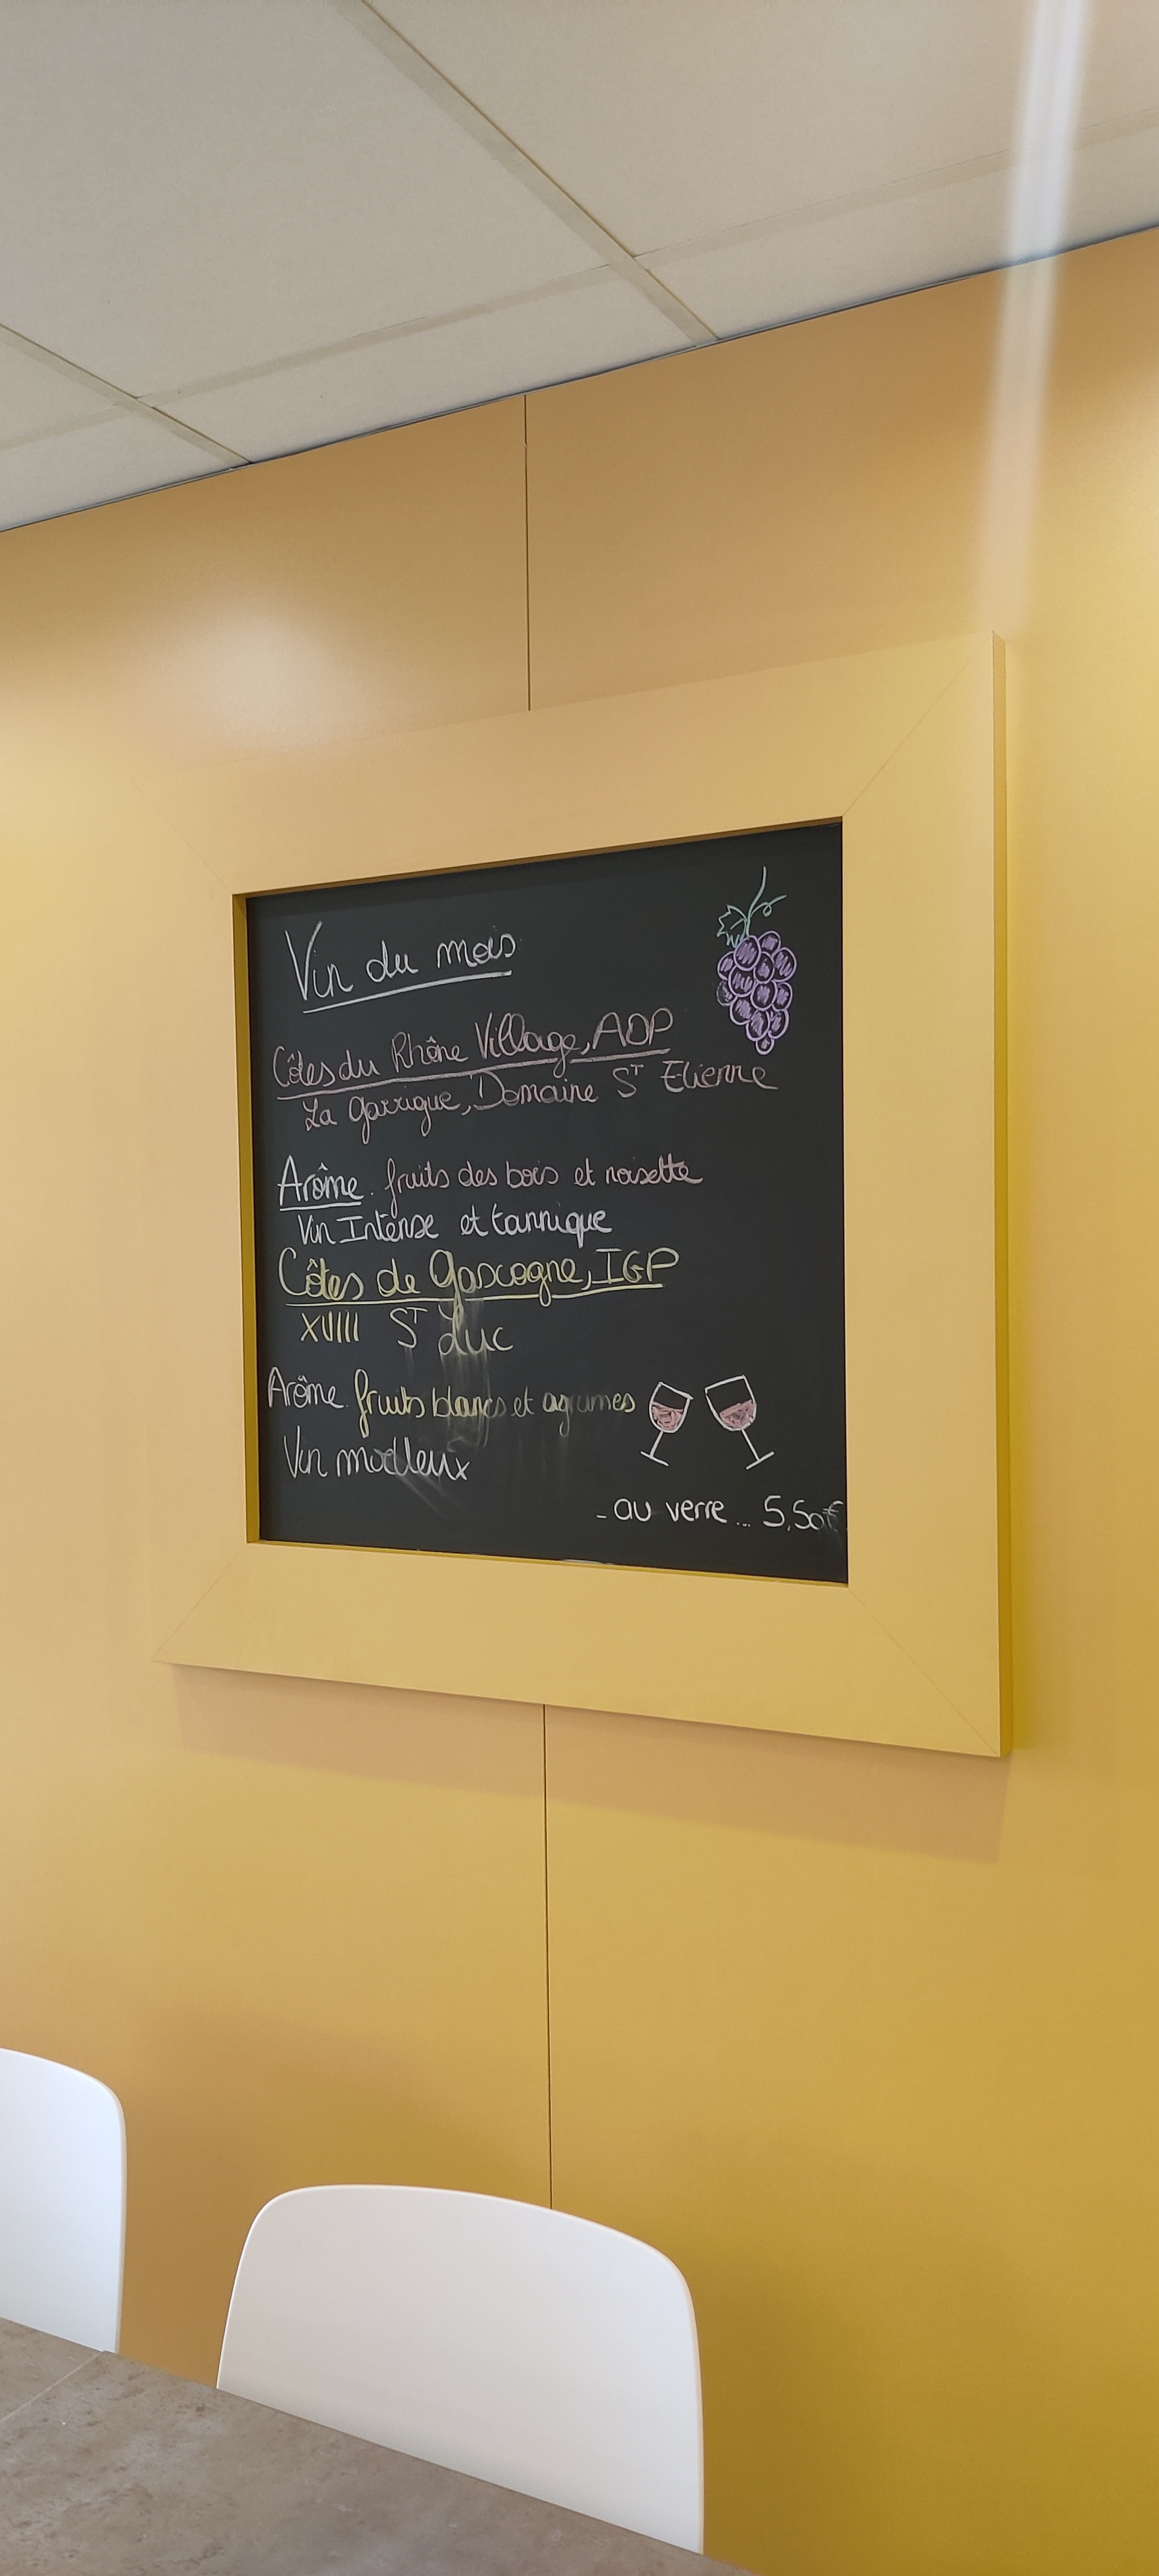 Vin du mois
Côtes du Rhône Village, AOP
La garrigue, Domaine ST Etienne
Arôme. fruits des bois et noisette
Vin Intense et tannique
Côtes de Gascogne, IGP
XVIII ST Luc
Arôme. fruits blancs et agrumes
Vin moelleux
- au verre ... 5,50€